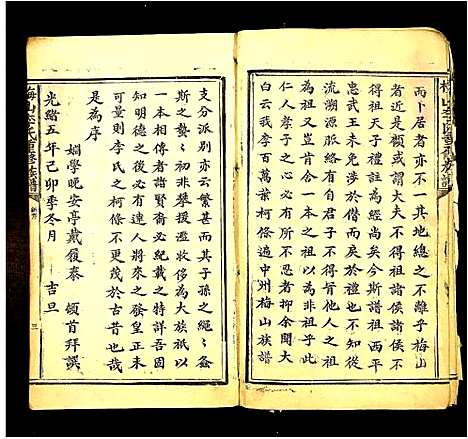 而卜居者亦不一其地總之不離乎梅山
者近是顧或謂大夫不得祖諸侯諸侯不
得祖天子其說為經尚矣今李譜祖西平
忠武王未嘗不可而必以為非祖乎此
流溯源祖其所祖惟恐冒他人之祖
為祖又豈肯舍一本之祖於不祖乎此
仁人孝子為心者所不忍者抑余讀
白云我李萬葉柯條遍中州梅山族譜
支分派別亦云繁甚而其子孫之繩繩螽
斯之蟄蟄初非攀援濫收侈為大族祇以
一本相傳者諸賢裔必紀載之特詳吾因
知明德之後必有達人將來之發皇正未
可量則李氏之柯條不更茂於古昔也哉
是為序
姻學晚安亭戴履泰 頓首拜譔
光緒五年己卯季冬月 吉旦
梅山李氏重修族譜
三
梅山李氏重修族譜